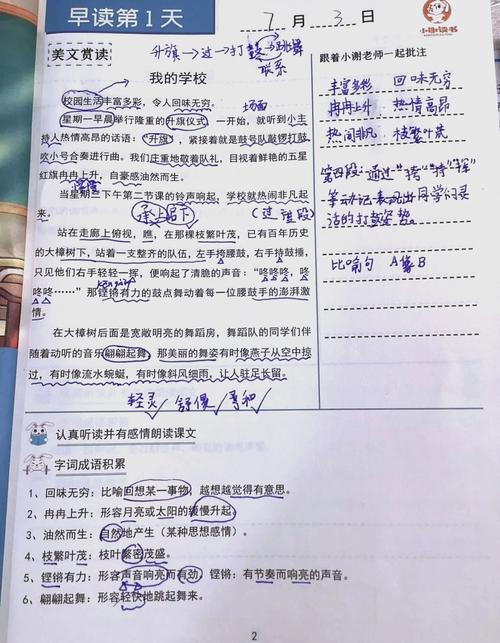 早读第1天
7月3日
小谢读书
美文赏读
升旗→过→打鼓→跳舞
联系
跟着小谢老师一起批注
我的学校
校园生活丰富多彩，令人回味无穷。
场面
星期一早晨举行隆重的升旗仪式。一开始，就听到小主
持人热情高昂的话语：“升旗”，紧接着就是鼓号队敲锣打鼓
吹小号合奏进行曲。我们庄重地敬着队礼，目视着鲜艳的五星
红旗冉冉上升，自豪感油然而生。
当星期二下午第二节课的铃声响起，学校就热闹非凡起
来。
承上启下
（过渡段）
站在走廊上俯视，瞧，在那棵枝繁叶茂，已有百年历史
的大樟树下，站着一支整齐的队伍，左手挎腰鼓，右手持鼓捶，
只见他们右手轻轻一挥，便响起了清脆的声音：“咚咚咚，咚
咚咚……”那铿锵有力的鼓点舞动着每一位腰鼓手的澎湃激
情。
在大樟树后面是宽敞明亮的舞蹈房，舞蹈队的同学们伴
随着动听的音乐翩翩起舞。那美丽的舞姿有时像燕子从空中掠
过，有时像流水蜿蜒，有时像斜风细雨，让人驻足长留。
轻灵 舒缓 柔和
丰富多彩 回味无穷
冉冉上升 热情高昂
热闹非凡 枝繁叶茂
第四段：通过“挎”“持”“挥”
等动词表现出同学们灵
活的打鼓姿势。
比喻句 A像B
认真听读并有感情朗读课文
字词成语积累
1、回味无穷：比喻回想某一事物，越想越觉得有意思。
2、冉冉上升：形容月亮或太阳的缓慢升起。
3、油然而生：自然地产生（某种思想感情）。
4、枝繁叶茂：枝叶繁密茂盛。
5、铿锵有力：形容声音响亮而有劲，铿锵：有节奏而响亮的声音。
6、翩翩起舞：形容轻快地跳起舞来。
2